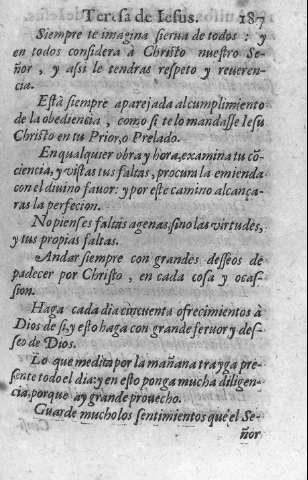 Teresa de Iesus. 187
Siempre te imagina sierua de todos : y
en todos considera à Christo nuestro Se-
ñor , y assi le tendras respeto y reueren-
cia.
Està siempre aparejada al cumplimiento
de la obediencia , como si te lo mandasse Iesu
Christo en tu Prior, o Prelado.
En qualquier obra y hora, examina tu cō
ciencia, y vistas tus faltas, procura la emienda
con el diuino fauor: y por este camino alcança-
ras la perfecion.
No pienses faltas agenas, sino las virtudes,
y tus propias faltas.
Andar siempre con grandes desseos de
padecer por Christo , en cada cosa y ocas-
sion.
Haga cada dia cincuenta ofrecimientos à
Dios de si, y esto haga con grande feruor y des-
seo de Dios.
Lo que medita por la mañana trayga pre-
sente todo el dia: y en esto ponga mucha diligen-
cia, porque ay grande prouecho.
Guarde mucho los sentimientos que el Se-
ñor